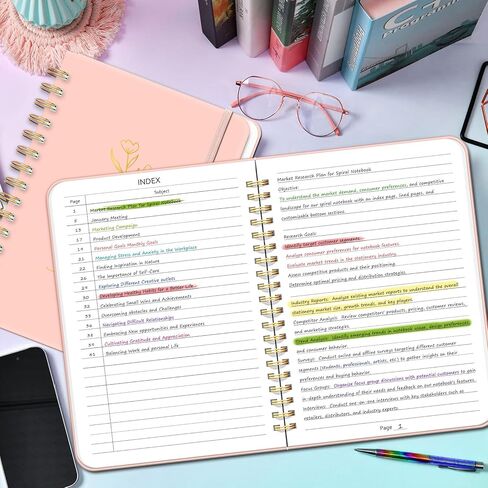 C++
Programming
INDEX
Page Subject
1 Market Research Plan for Spiral Notebook
5 January Meeting
13 Marketing Campaign
17 Product Development
19 Personal Goals Monthly Goals
21 Managing Stress and Anxiety in the Workplace
22 Finding Inspiration in Nature
26 The Importance of Self-Care
29 Exploring Different Creative Outlets
30 Developing Healthy Habits for a Better Life
32 Celebrating Small Wins and Achievements
33 Overcoming Obstacles and Challenges
34 Navigating Difficult Relationships
36 Embracing New opportunities and Experiences
39 Cultivating Gratitude and Appreciation
41 Balancing Work and personal Life
Market Research Plan for Spiral Notebook
Objective:
To understand the market demand, consumer preferences, and competitive
landscape for our spiral notebook with an index page, lined pages, and
customizable bottom sections.
Research Goals:
Identify target customer segments.
Analyze consumer preferences for notebook features.
Evaluate market trends in the stationery industry.
Assess competitive products and their positioning.
Determine optimal pricing and distribution strategies.
Industry Reports: Analyze existing market reports to understand the overall
stationery market size, growth trends, and key players.
Competitor Analysis: Review competitors' products, pricing, customer reviews,
and marketing strategies.
Trend Analysis: Identify emerging trends in notebook usage, design preferences,
and consumer behavior.
Surveys: Conduct online and offline surveys targeting different customer
segments (students, professionals, artists, etc.) to gather insights on their
preferences and buying behavior.
Focus Groups: Organize focus group discussions with potential customers to gain
in-depth understanding of their needs and feedback on our notebook's features.
Interviews: Conduct one-on-one interviews with key stakeholders such as
retailers, distributors, and industry experts.
Page 1